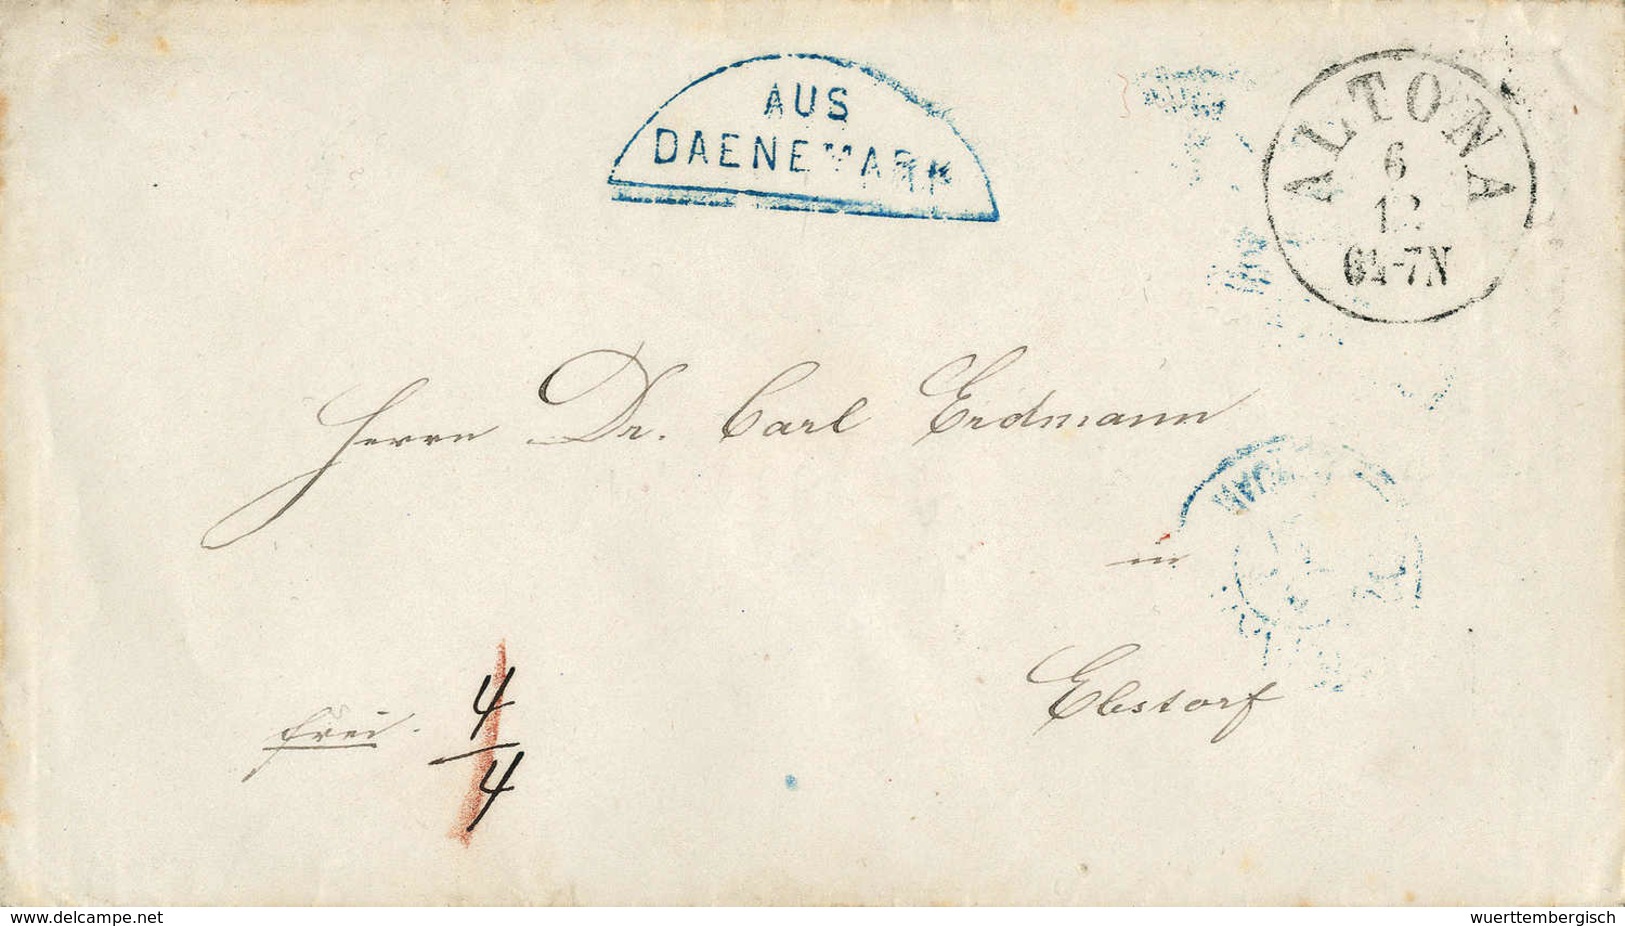 AUS
DAENEMARK
ALTONA
6
12
6½-7N
Herrn Dr. Carl Erdmann
in
Ebstorf
frei.
4
4
www.delcampe.net
wuerttembergisch